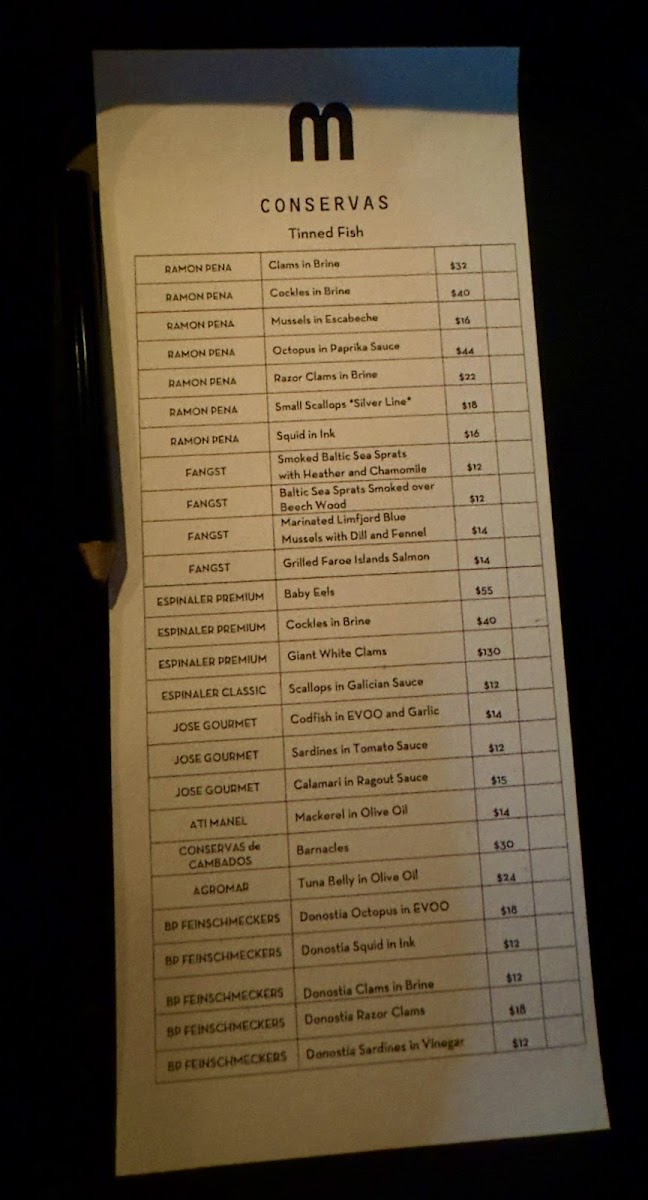 m
CONSERVAS
Tinned Fish
RAMON PENA Clams in Brine $32
RAMON PENA Cockles in Brine $40
RAMON PENA Mussels in Escabeche $16
RAMON PENA Octopus in Paprika Sauce $44
RAMON PENA Razor Clams in Brine $22
RAMON PENA Small Scallops "Silver Line" $18
RAMON PENA Squid in Ink $16
FANGST Smoked Baltic Sea Sprats
with Heather and Chamomile $12
FANGST Baltic Sea Sprats Smoked over
Beech Wood $12
FANGST Marinated Limfjord Blue
Mussels with Dill and Fennel $14
FANGST Grilled Faroe Islands Salmon $14
ESPINALER PREMIUM Baby Eels $55
ESPINALER PREMIUM Cockles in Brine $40
ESPINALER PREMIUM Giant White Clams $130
ESPINALER CLASSIC Scallops in Galician Sauce $12
JOSE GOURMET Codfish in EVOO and Garlic $14
JOSE GOURMET Sardines in Tomato Sauce $12
JOSE GOURMET Calamari in Ragout Sauce $15
ATI MANEL Mackerel in Olive Oil $14
CONSERVAS de
CAMBADOS Barnacles $30
AGROMAR Tuna Belly in Olive Oil $24
BP FEINSCHMECKERS Donostia Octopus in EVOO $18
BP FEINSCHMECKERS Donostia Squid in Ink $12
BP FEINSCHMECKERS Donostia Clams in Brine $12
BP FEINSCHMECKERS Donostia Razor Clams $18
BP FEINSCHMECKERS Donostia Sardines in Vinegar $12